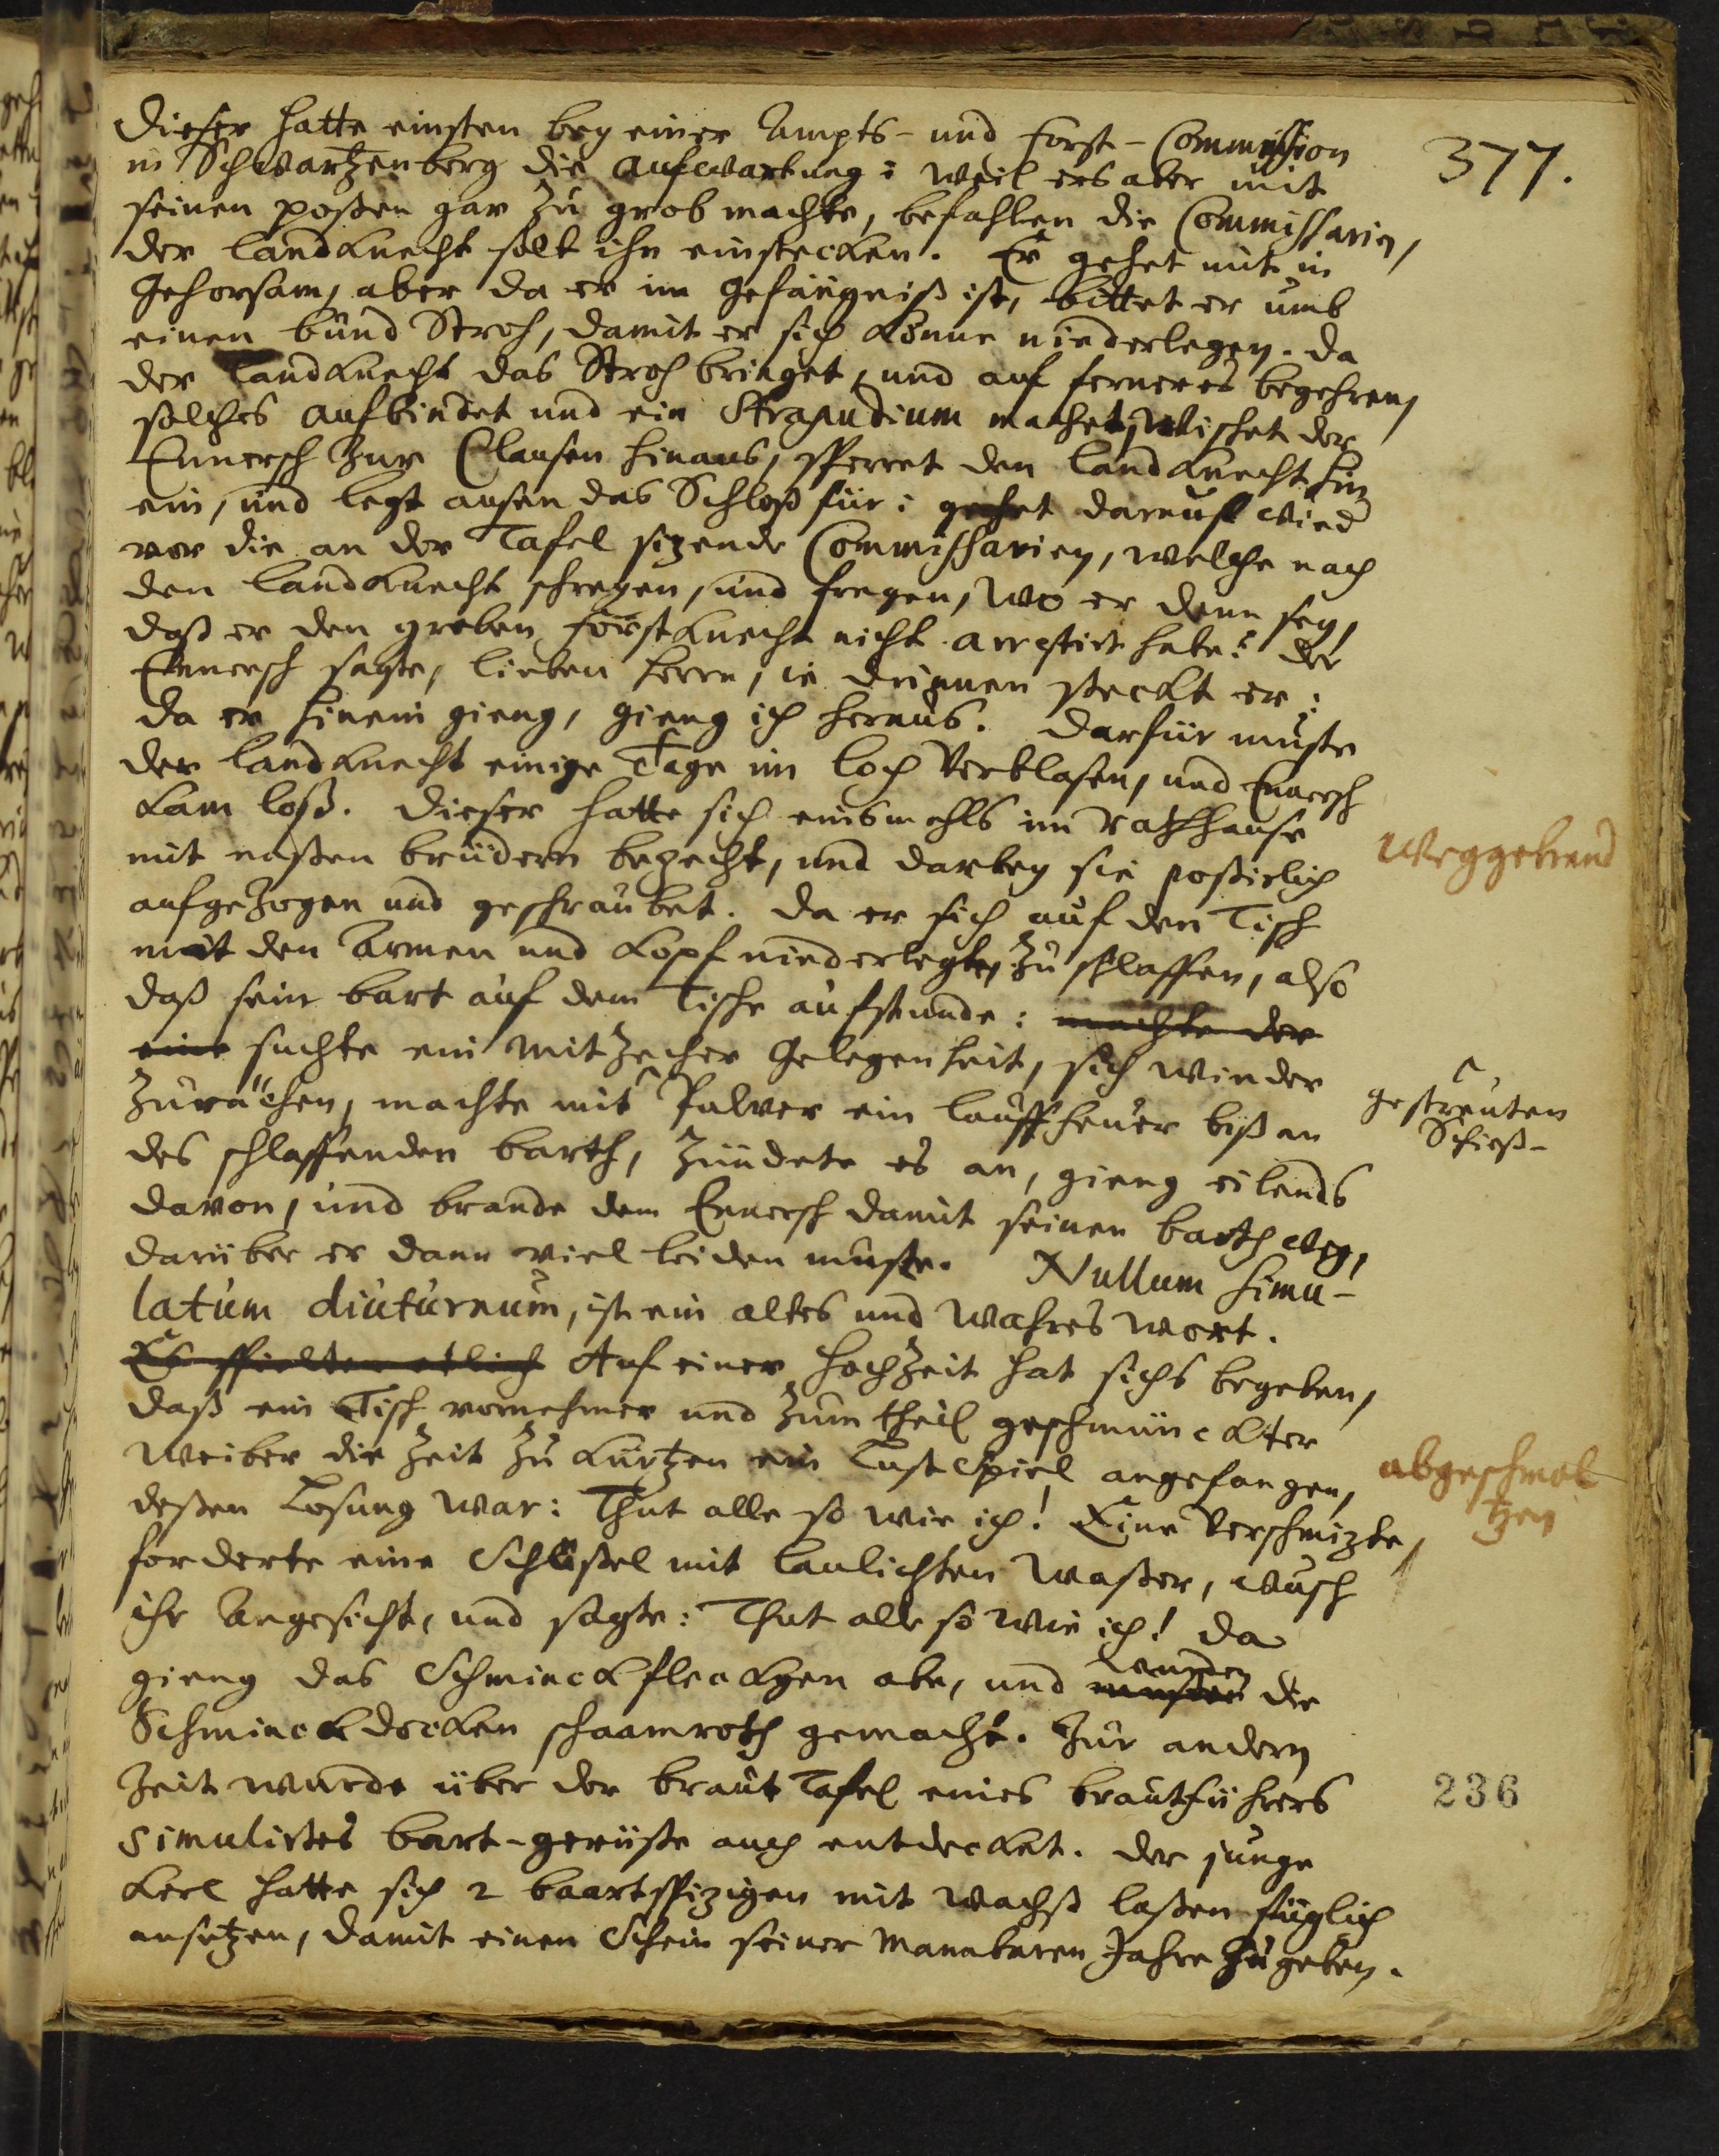 377.
Dieser hatte einsten bey einer Ampts- und Forst-Commission
in Schwartzenberg die aufwartung: weil ers aber mit
seinen poßen gar zu grob machte, befahlen die Commissarien,
der Landknecht solt ihn einstecken. Er gehet mit in
Gehorsam, aber da er im Gefängniß ist, bittet er umb
einen bund Stroh, damit er sich könne niederlegen. da
der Landknecht das Stroh bringet, und auf ferneres begehren,
solches aufbindet und ein Strapudium machet, wischet der
Ennersch zur Clausen hinaus, sperret den Landknecht hin
ein, und legt ausen das Schloß für: gehet darauf wied
vor die an der Tafel sizende Commissarien, welche nach
den Landknecht schreyen, und fragen, wo er denn sey,
daß er den groben forstknecht nicht arrestirt habe? der
Ennersch sagte, lieben herrn, ie drinnen steckt er:
da er hinein gieng, gieng ich heraus. Darfür muste
der Landknecht einige Tage im Loch verblasen, und Ennersch
kam loß. Dieser hatte sich einsmahls im Rathhause
mit naßen brüdern bezecht, und darbey sie poßirlich
aufgezogen und geschraubet. da er sich auf den Tisch
mit den Armen und Kopf niederlegte, zu schlaffen, also
daß sein bart auf dem Tische aufstunde: machte der
eine suchte ein Mitzecher Gelegenheit, sich wieder
zurächen, machte mit Pulver ein lauffheuer biß an
des schlaffenden barth, zündete es an, gieng eilends
davon, und brande dem Ennersch damit seinen barth weg,
darüber er dann viel leiden muste. Nullum simu-
latum diuturnum, ist ein altes und wahres wort.
Es spielten etlich Auf einer Hochzeit hat sichs begeben,
daß ein Tisch vornehmer und zum theil geschmünckter
Weiber die Zeit zu kürtzen ein Lust Spiel angefangen,
deßen Losung war: Thut alle so wie ich! Eine verschmizte,
forderte eine Schüßel mit laulichten Waßer, wusch
ihr Angesicht, und sagte: Thut alle so wie ich! da
gieng das Schminckfleckgen abe, und musten die
wurden
Schminckdocken schaamroth gemacht. Zur andern
Zeit wurde über der braut Tafel eines brautführers
simulirtes bart-gerüste auch entdecket. der junge
Kerl hatte sich 2 baartspizigen mit wachß laßen füglich
ansetzen, damit einen Schein seiner Mannbaren Jahre zu geben.
weggebrand
gestreuten
Schieß-
abgeschmol
tzen
236